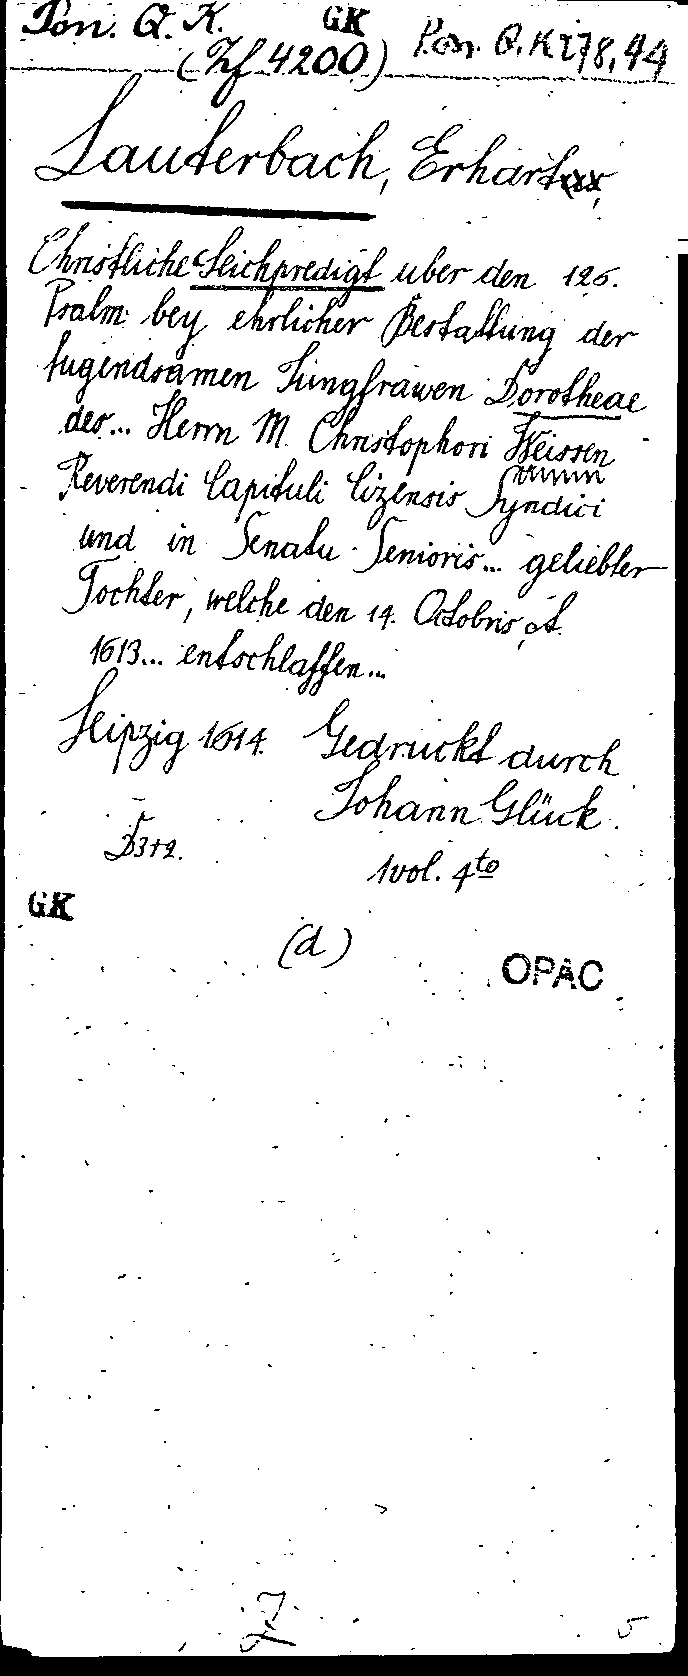 Pon. Q. K. GK
(Zf 4200) Pon. Q. K 278, 44
Lauterbach, Erhart
Christliche Leichpredigt uber den 126.
Psalm bey ehrlicher Bestattung der
tugendsamen Jungfrawen Dorotheae
des... Herrn M. Christophori Weissen
Reverendi Capituli Cizensis Syndici
und in Senatu Senioris... geliebter
Tochter, welche den 14. Octobris
1613... entschlaffen...
Leipzig 1614. Gedruckt durch
Johann Glück.
1 vol. 4to
GK
(d)
OPAC